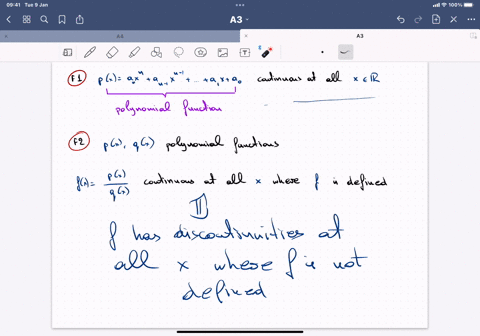 09:41 Tue 9 Jan
100%
A3
A4
A3
F1 p(x) = aₙxⁿ + aₙ₋₁xⁿ⁻¹ + ... + a₁x + a₀ continuous at all x ∈ ℝ
polynomial function
F2 p(x), q(x) polynomial functions
f(x) = p(x)/q(x) continuous at all x where f is defined
f has discontinuities at
all x where f is not
defined